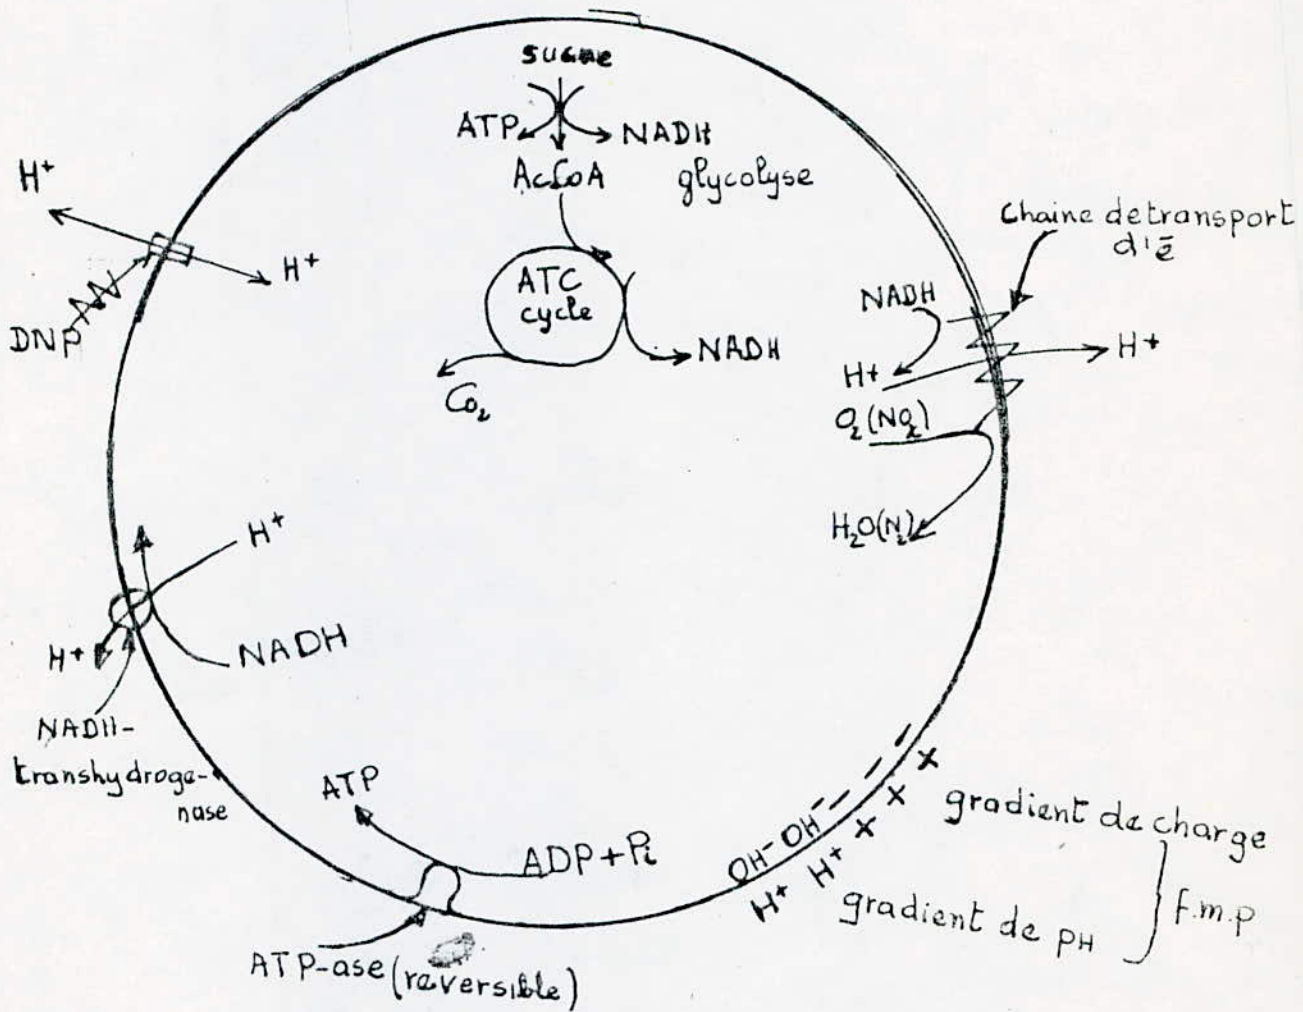 sucre
ATP NADH
AcCoA glycolyse
ATC
cycle
NADH
Co₂
H⁺
H⁺
DNP
Chaine de transport
d'ē
NADH
H+
H⁺
O₂(NO₂)
H₂O(N₂)
H⁺
H⁺
NADH
NADH-
transhydroge-
nase
ATP
ADP+Pi
ATP-ase (reversible)
OH⁻ OH⁻ – – –
H⁺ H⁺ + + +
gradient de charge
gradient de pH
f.m.p